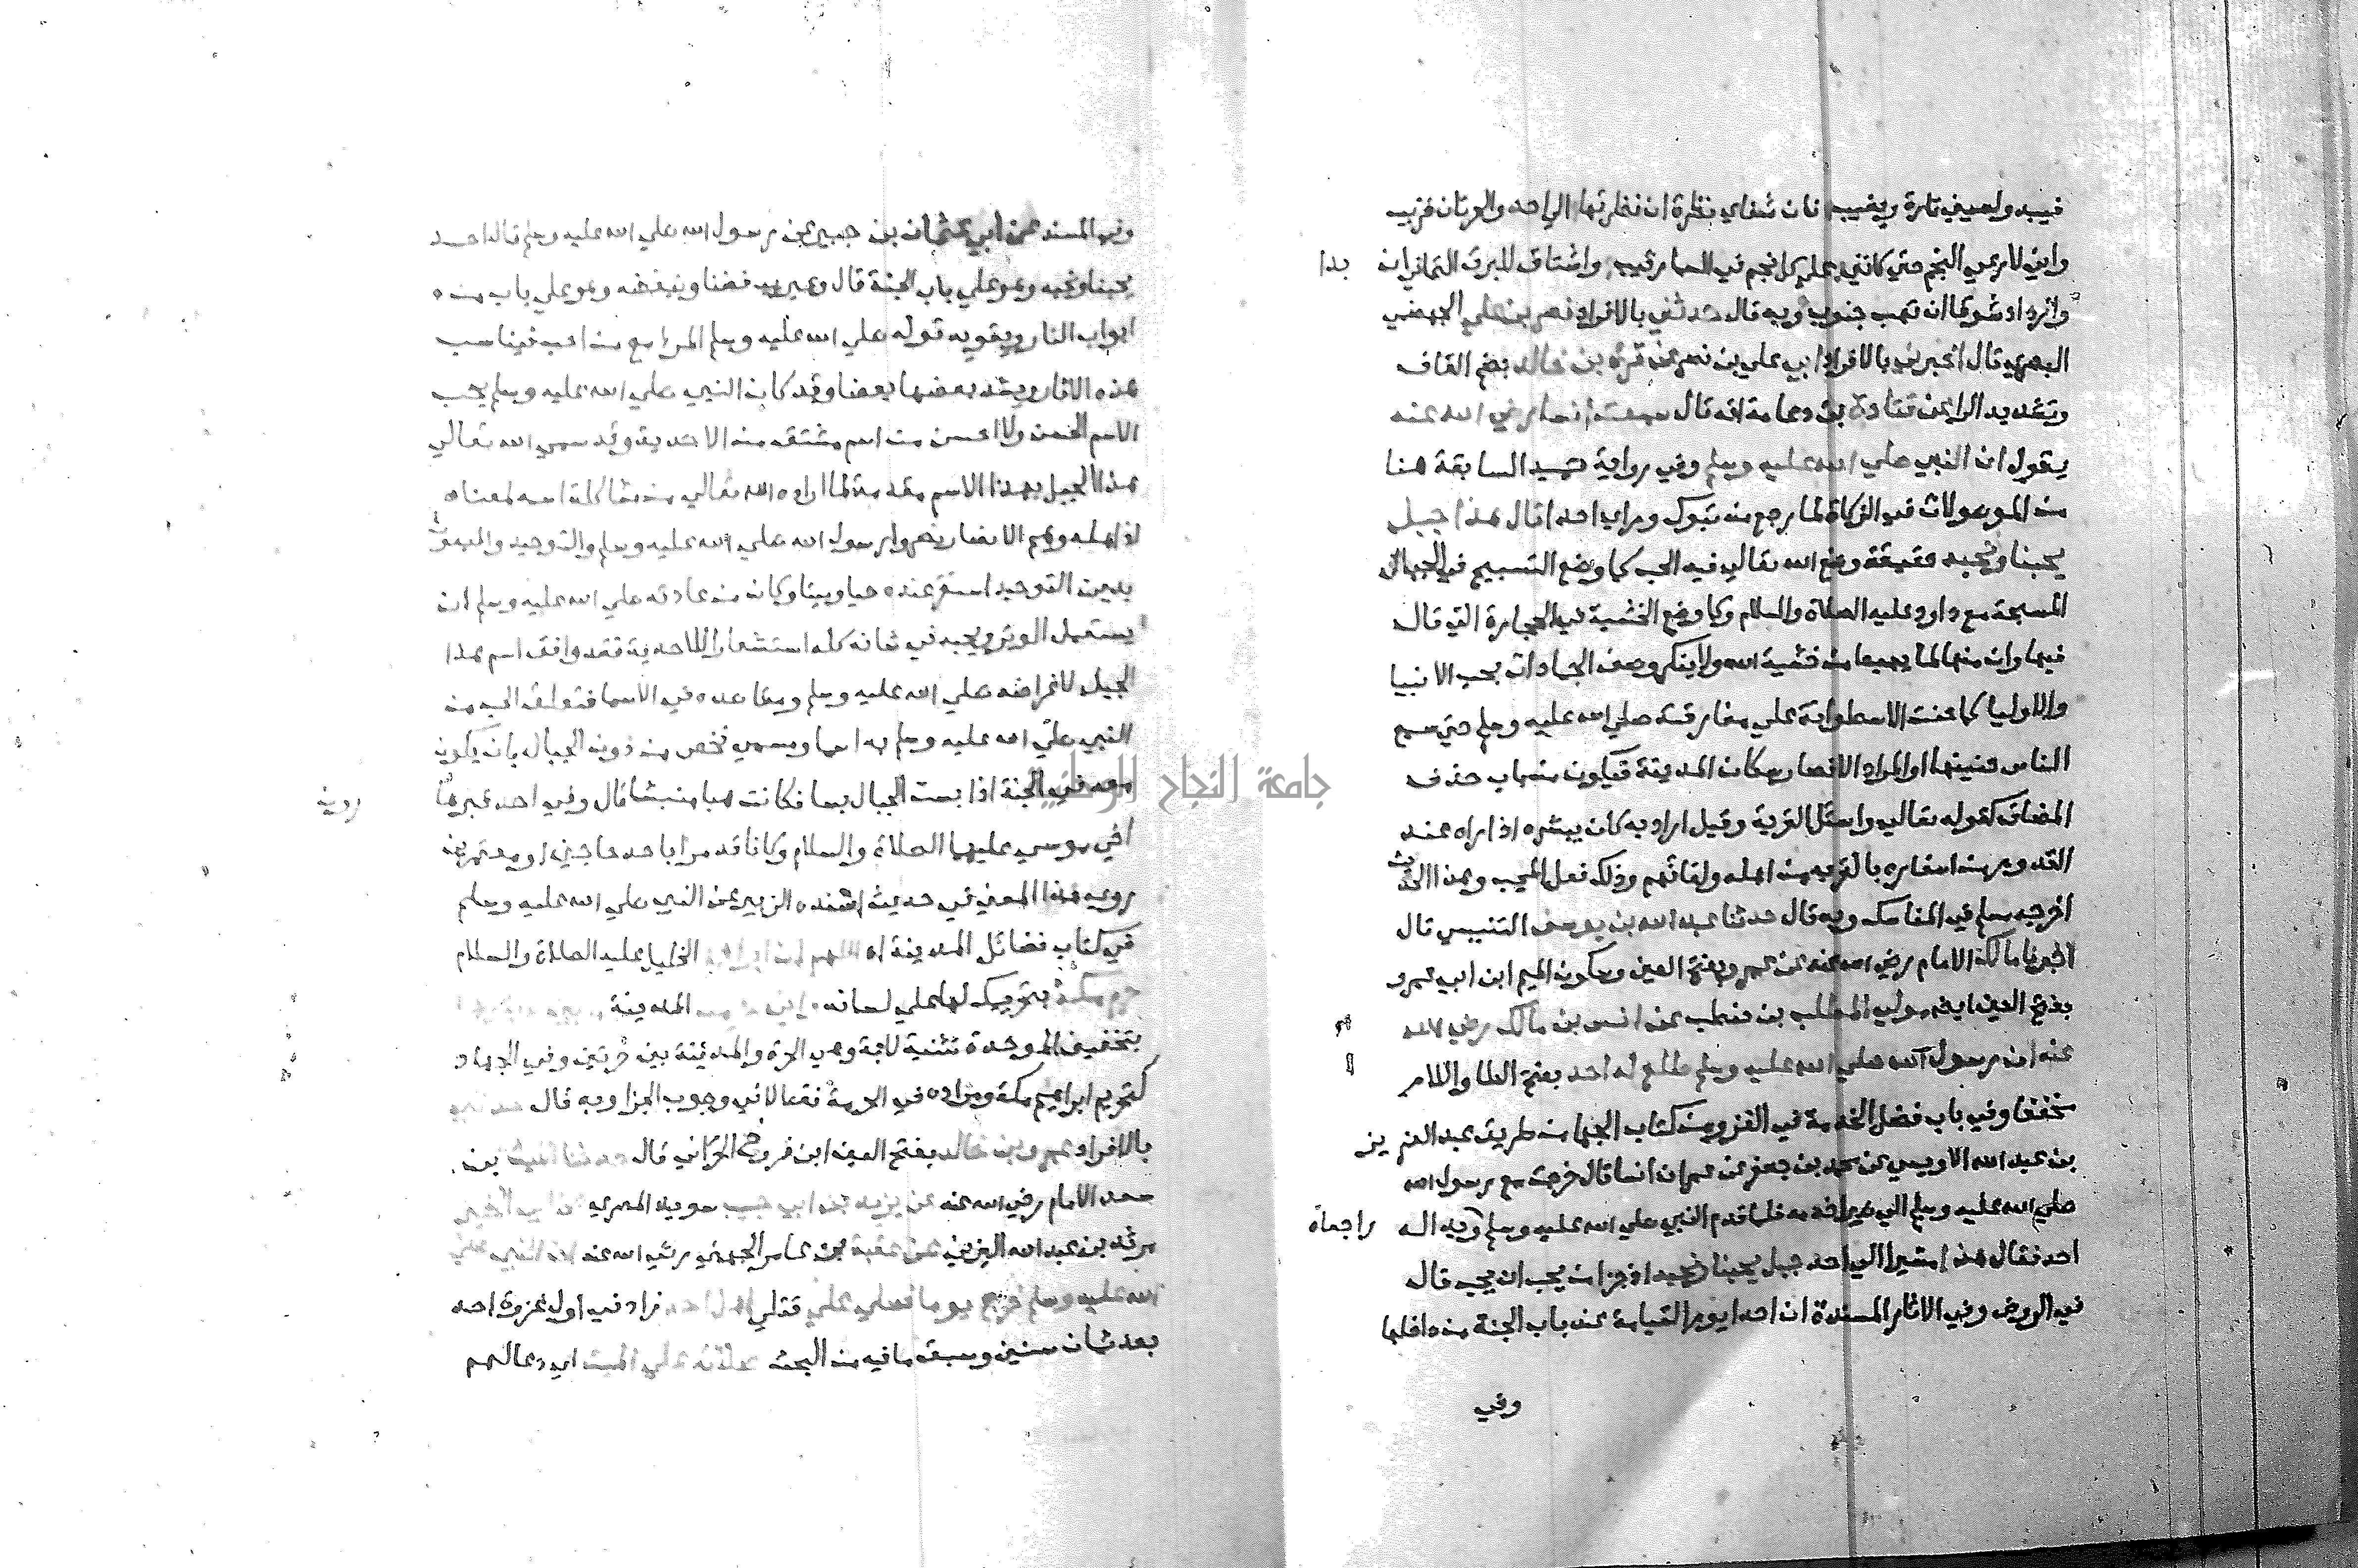 فيبدو لعيني تارة ويغيب فان شفاي نظرة ان نظرتها الي احد والحرتان قريب
واني لارعي النجم حتي كانني علي كل نجم في السما رقيب واشتاق للبرق اليماني ان بدا
وازداد شوقا ان تهب جنوب وبه قال حدثني بالافراد نصر بن علي الجهضمي
البصري قال اخبرني بالافراد ابي علي بن نصر عن قرة بن خالد بضم القاف
وتشديد الرا عن قتادة بن دعامة انه قال سمعت انسا رضي الله عنه
يقول ان النبي صلي الله عليه وسلم وفي رواية حميد السابقة هنا
من الموصولات في الزكاة لما رجع من تبوك وراي احدا قال هذا جبل
يحبنا ونحبه حقيقة وضع الله تعالي فيه الحب كما وضع التسبيح في الجبال
المسبحة مع داود عليه الصلاة والسلام وكما وضع الخشية في الحجارة التي قال
فيها وان منها لما يهبط من خشية الله ولا ينكر وصف الجمادات بحب الانبيا
والاوليا كما حنت الاسطوانة علي مفارقته صلي الله عليه وسلم حتي سمع
الناس حنينها او المراد الانصار سكان المدينة فيكون من باب حذف
المضاف كقوله تعالي واسئل القرية وقيل اراد به كان يبشره اذا راه عند
القدوم من اسفاره بالقرب من اهله ولقائهم وذلك فعل المحب وهذا الحديث
اخرجه مسلم في المناسك وبه قال حدثنا عبد الله بن يوسف التنيسي قال
اخبرنا مالك الامام رضي الله عنه عن عمرو بفتح العين وسكون الميم ابن ابي عمرو
بفتح العين ايضا مولي المطلب بن حنطب عن انس بن مالك رضي الله
عنه ان رسول الله صلي الله عليه وسلم طلع له احد بفتح الطا واللام
مخففا وفي باب فضل الخدمة في الغزو من كتاب الجهاد من طريق عبد العزيز
بن عبد الله الاويسي عن محمد بن جعفر عن عمرو ان انسا قال خرجت مع رسول الله
صلي الله عليه وسلم الي خيبر اخدمه فلما قدم النبي صلي الله عليه وسلم راجعا وبدا له
احد فقال هذا مشيرا الي احد جبل يحبنا ونحبه اذ جزا من يحب ان يحب قال
في الروض وفي الاثار المسندة ان احدا يوم القيامة عند باب الجنة من داخلها
وفي
وفي المسند عن ابي عثمان بن جبير عن رسول الله صلي الله عليه وسلم قال احد
يحبنا ونحبه وهو علي باب الجنة قال وعير يبغضنا ونبغضه وهو علي باب من
ابواب النار ويقويه قوله صلي الله عليه وسلم المرا مع من احب فيناسب
هذه الاثار ويشد بعضها بعضا وقد كان النبي صلي الله عليه وسلم يحب
الاسم الحسن ولا احسن من اسم مشتق من الاحدية وقد سمي الله تعالي
هذا الجبل بهذا الاسم مقدمة لما اراده الله تعالي من مشاكلة اسمه لمعناه
اذ اهله وهم الانصار نصروا رسول الله صلي الله عليه وسلم والتوحيد والمبعوث
بدين التوحيد استقر عنده حيا وميتا وكان من عادته صلي الله عليه وسلم ان
يستعمل الوتر ويحبه في شانه كله استشعارا للاحدية فقد وافق اسم هذا
الجبل لاغراضه صلي الله عليه وسلم ومقاصده في الاسما فتعلق الحب من
النبي صلي الله عليه وسلم به اسما ومسمي فخص من دون الجبال بان يكون
معه في الجنة اذا بست الجبال بسا فكانت هبا منبثا قال وفي احد قبر هارون
اخي موسي عليهما الصلاة والسلام وكانا قد مرا باحد حاجين او معتمرين
روي هذا المعني في حديث اسنده الزبير عن النبي صلي الله عليه وسلم
في كتاب فضائل المدينة اه اللهم ان ابراهيم الخليل عليه الصلاة والسلام
حرم مكة بتحريمك لها علي لسانه واني حرمت المدينة
بتخفيف الموحدة تثنية لابة وهي الحرة والمدينة بين حرتين وفي الجهاد
كتحريم ابراهيم مكة ومراده في الحرمة فقط لا في وجوب الجزا وبه قال حدثني
بالافراد عمرو بن خالد بفتح العين ابن فروخ الحراني قال حدثنا الليث بن
سعد الامام رضي الله عنه عن يزيد بن ابي حبيب سويد المصري عن ابي الخير
مرثد بن عبد الله اليزني عن عقبة بن عامر الجهني رضي الله عنه ان النبي صلي
الله عليه وسلم خرج يوما فصلي علي قتلي اهل احد زاد في اول غزوة احد
بعد ثمان سنين وسبق ما فيه من البحث صلاته علي الميت اي دعا لهم